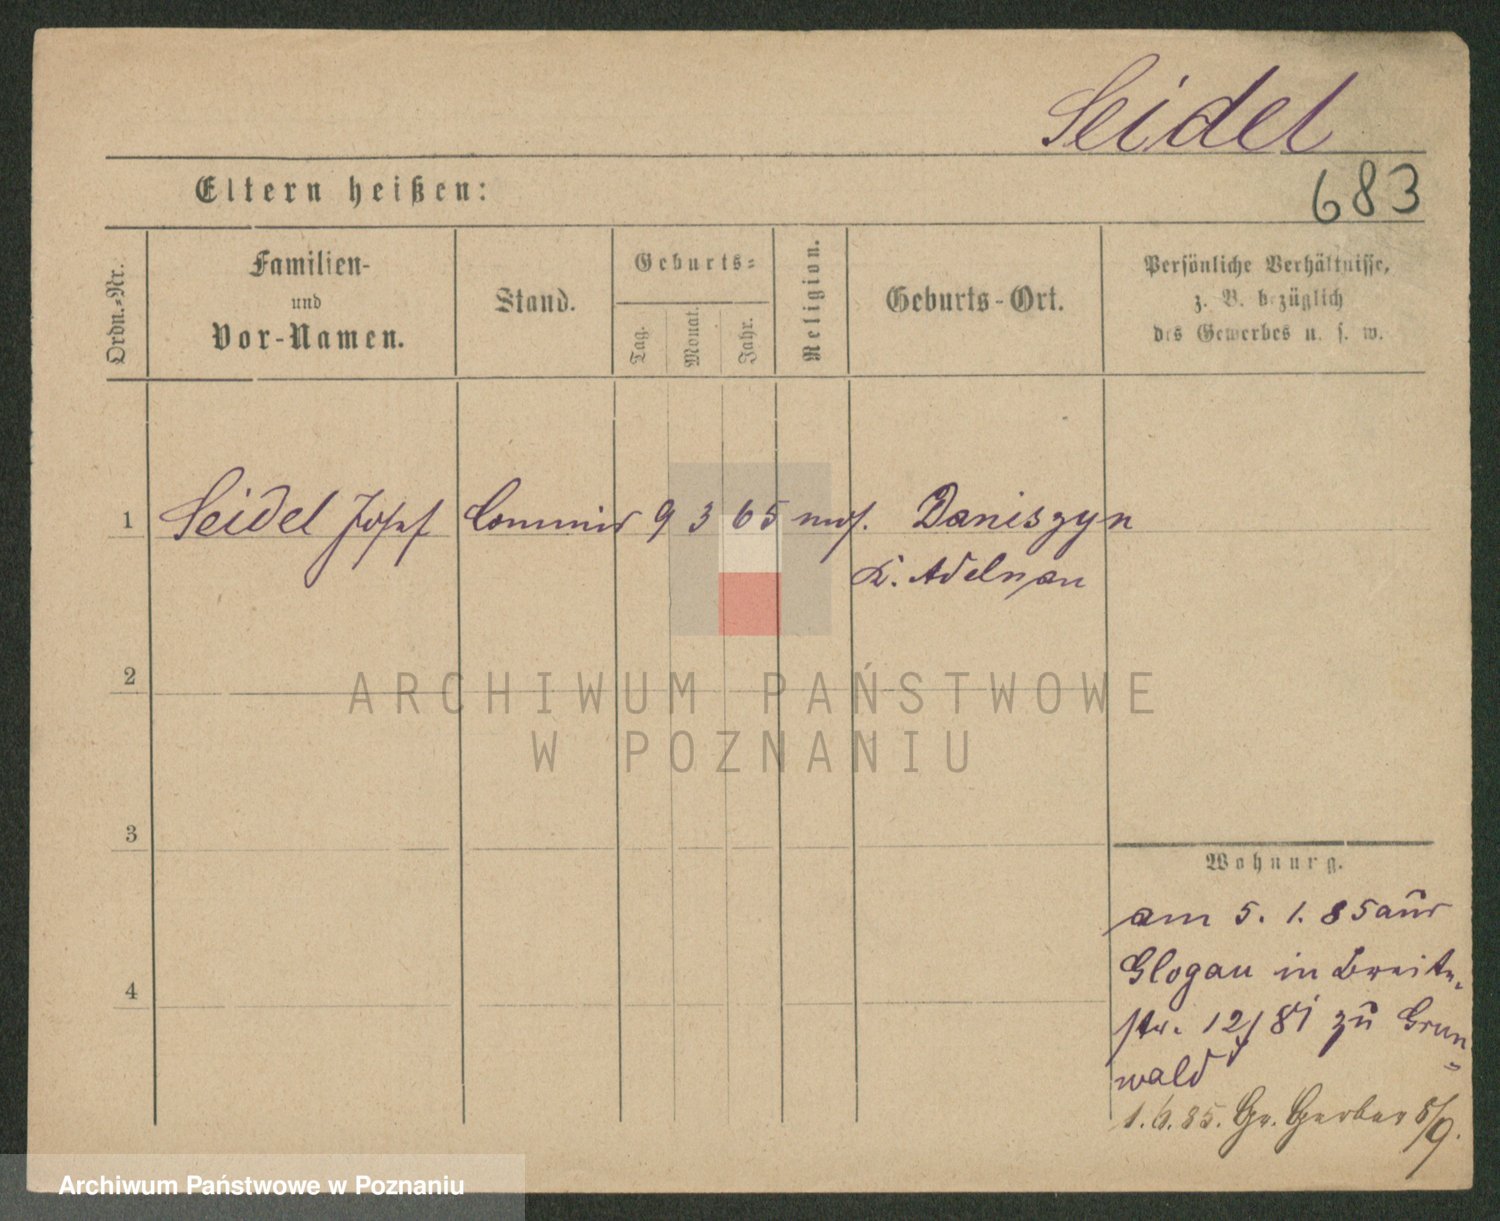 Seidel
Eltern heißen:
683
Ordn.-Nr.
Familien-
und
Vor-Namen.
Stand.
Geburts-
Tag.
Monat.
Jahr.
Religion.
Geburts-Ort.
Persönliche Verhältnisse,
z. B. bezüglich
des Gewerbes u. s. w.
1 Seidel Josef Commis 9 3 65 mos. Daniszyn
K. Adelnau
2
ARCHIWUM PAŃSTWOWE
W POZNANIU
3
Wohnung.
am 5. 1. 85 aus
Glogau in Breite-
4
str. 12/ zu Grun-
wald
1. 6. 85. Gr. Gerber 8/9.
Archiwum Państwowe w Poznaniu